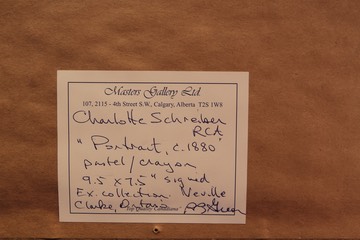 Masters Gallery Ltd.
107, 2115 - 4th Street S.W., Calgary, Alberta T2S 1W8
Charlotte Schreiber
RCA
"Portrait, c.1880"
pastel/crayon
9.5 x 7.5" signed
Ex. collection Neville
Clarke, Ontario